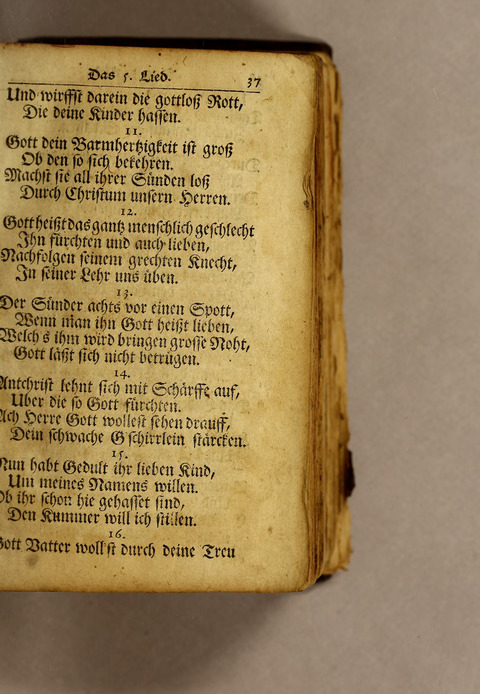 Das 5. Lied. 37
Und wirffst darein die gottloß Rott,
Die deine Kinder hassen.
11.
Gott dein Barmhertzigkeit ist groß
Ob den so sich bekehren.
Machst sie all ihrer Sünden loß
Durch Christum unsern Herren.
12.
Gott heißt das gantz menschlich geschlecht
Ihn fürchten und auch lieben,
Nachfolgen seinem grechten Knecht,
In seiner Lehr uns üben.
13.
Der Sünder achts vor einen Spott,
Wenn man ihn Gott heißt lieben,
Welchs ihm wird bringen grosse Noht,
Gott läßt sich nicht betrügen.
14.
Antchrist lehnt sich mit Schärffe auf,
Uber die so Gott fürchten.
Ach Herre Gott wollest sehen drauff,
Dein schwache G'schirrlein stärcken.
15.
Nun habt Gedult ihr lieben Kind,
Um meines Namens willen.
Ob ihr schon hie gehasset sind,
Den Kummer will ich stillen.
16.
Gott Vatter wollst durch deine Treu